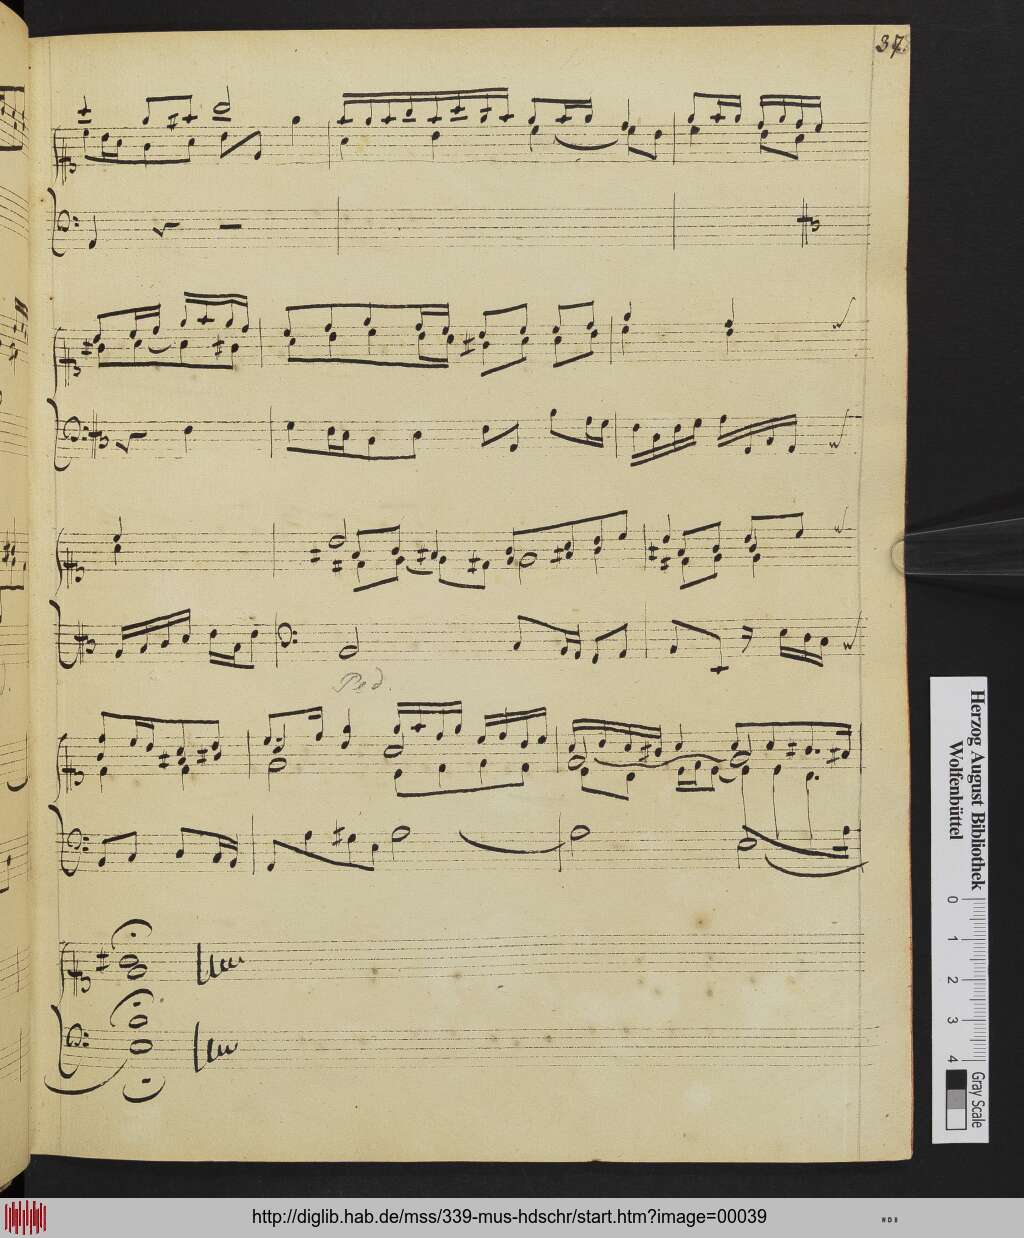 37
Ped.
Herzog August Bibliothek
Wolfenbüttel
0 1 2 3 4
Gray Scale
http://diglib.hab.de/mss/339-mus-hdschr/start.htm?image=00039